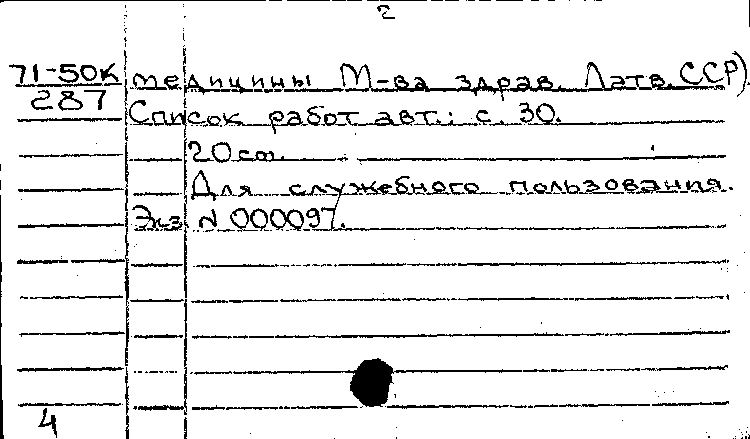 2
71-50к медицины М-ва здрав. Латв. ССР)
287 Список работ авт.: с. 30.
20 см.
Для служебного пользования.
Экз. N 000097.
4